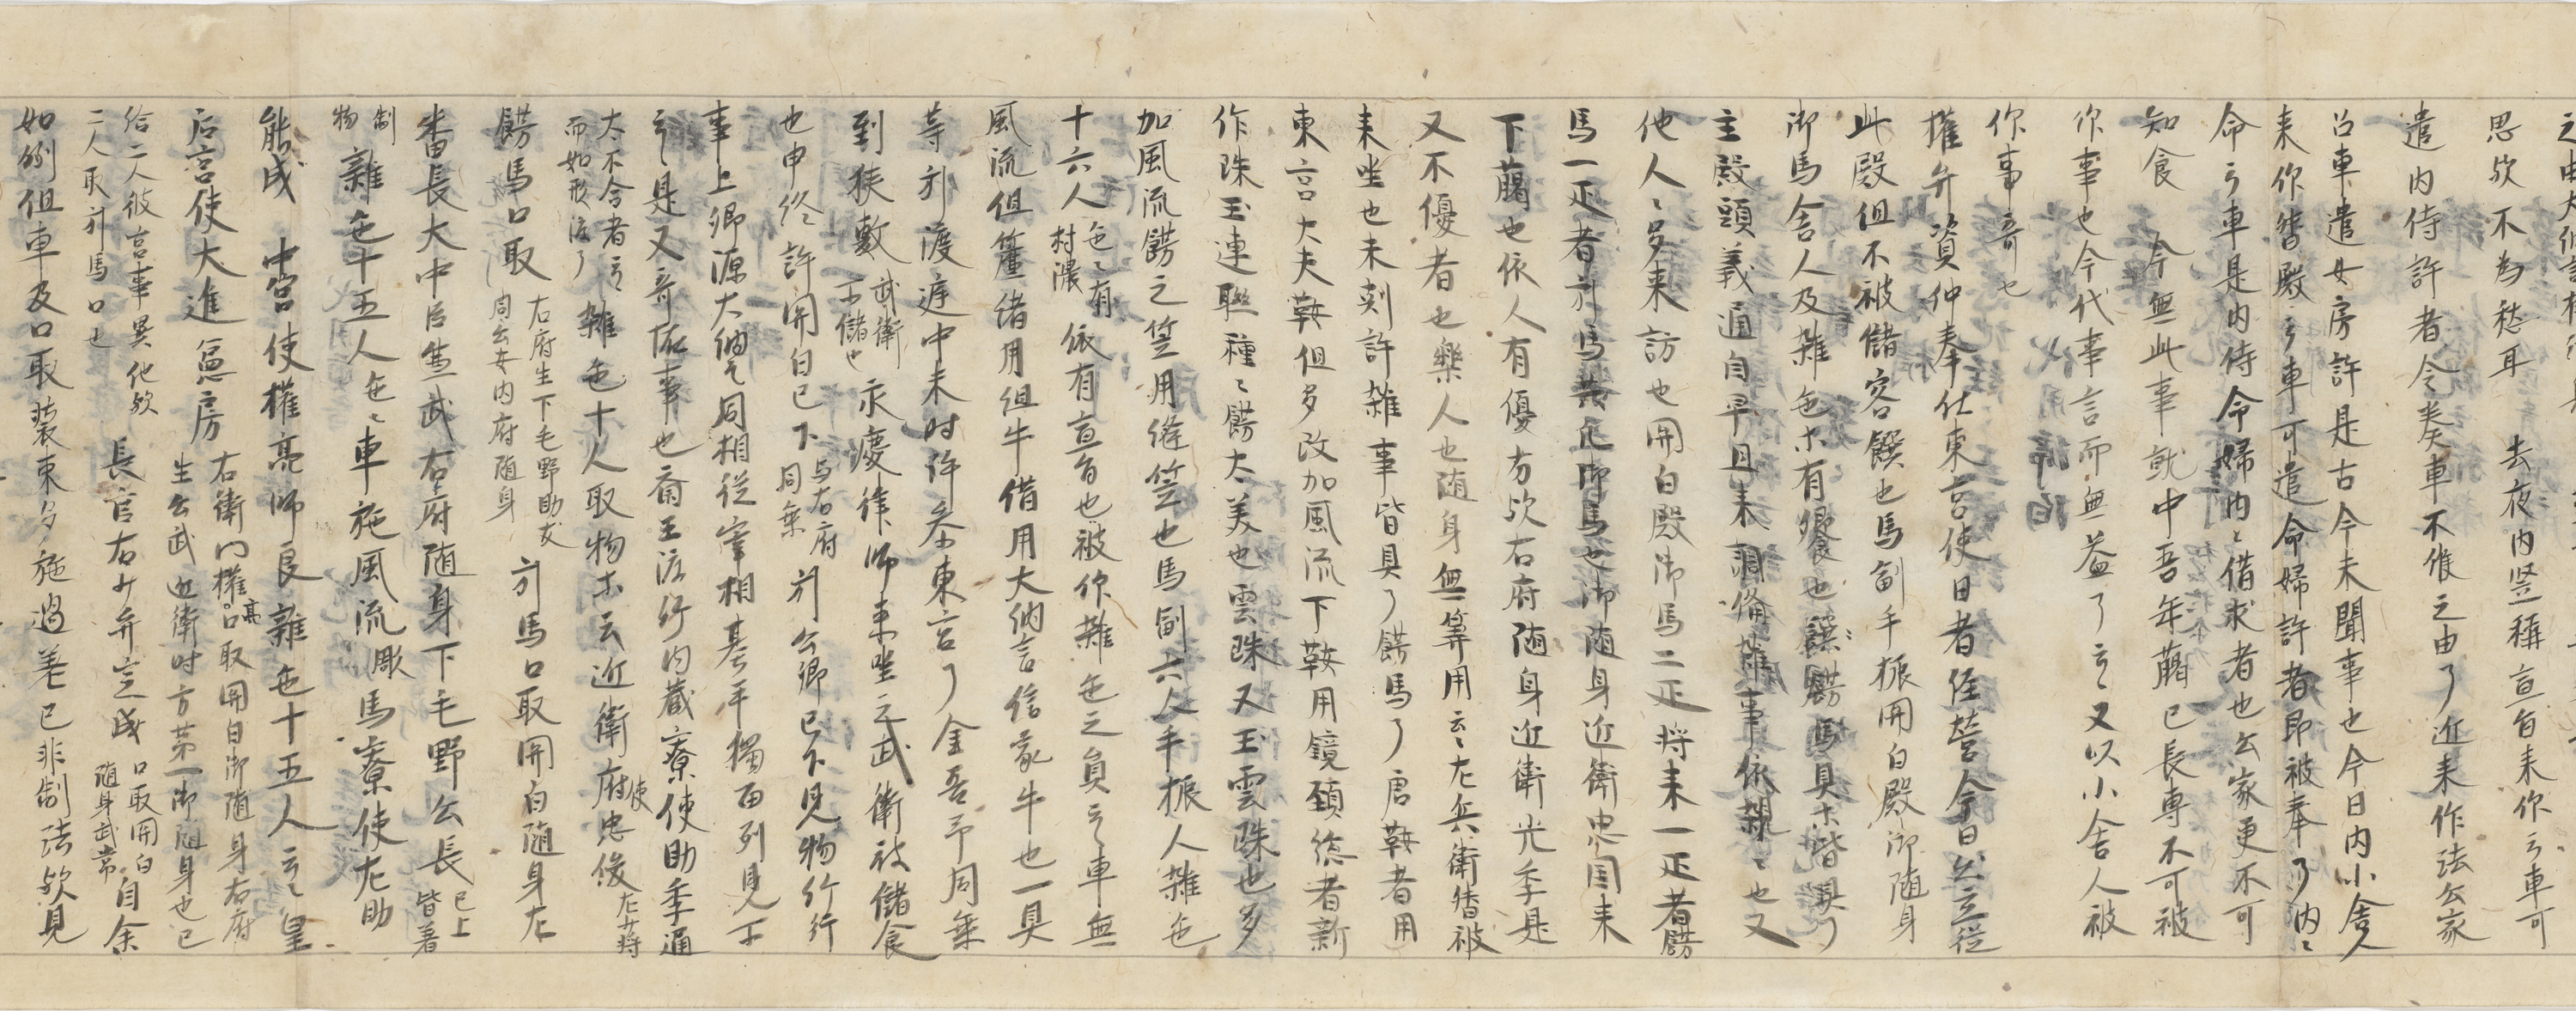 思欤不為愁耳　去夜内竪稱宣旨来仰云車可
遣内侍許者令奏車不候之由了近来作法公家
召車遣女房許是古今未聞事也今日内小舎人
来仰替殿云車可遣命婦許者即被奉了内々
命云車是内侍命婦内々借求者也公家更不可
知食　今無此事就中吾年﨟已長専不可被
仰事也今代事言而無益了云々又以小舎人被
仰事奇也
權弁資仲奉仕東宮使日者経營今日公立従
此殿但不被儲客饌也馬副手振開白殿御随身
御馬舎人及雑色等有饗也饌餝馬具等皆具了
主殿頭義通自早旦来調備雑事依親々也又
他人々多来訪也開白殿御馬二疋将来一疋者餝
馬一疋者引馬共是御馬也御随身近衛忠国来
下﨟也依人有優劣欤右府随身近衛光季是
又不優者也樂人也随身無等用云々左兵衛督被
来坐也未剋許雑事皆具了餝馬了唐鞍者用
東宮大夫鞍但多改加風流下鞍用鏡頚總者新
作珠玉連聯種々餝太美也雲珠又玉雲珠也多
加風流餝之笠用縫笠也馬副六人手振人雑色
十六人色々有村濃依有宣旨也被仰雑色之員云々車無
風流但簾緒用組牛借用大納言信家牛也一具
等引渡庭中未时許参東宮了金吾予同乗
到狭敷武衛不儲也永慶律師来坐云武衛被儲食
也申終許開白已下与右府同乗引公卿已下見物行々
事上卿源大納言同相従宰相基平獨留列見不
云々是又奇恠事也斎王渡行内蔵寮使助季通
太不合者云々而如形渡了雑色十人取物等云近衛府使忠俊左少将
餝馬口取右府生下毛野助友同公安内府随身引馬口取開白随身左
番長大中臣兼武右府随身下毛野公長已上皆着
制物雑色十五人色々車施風流彫馬寮使左助
能成　中宮使權亮師良雑色十五人云々皇
后宮使大進憲房右衛門權亮口取開白御随身右府生公武近衛时方第一御随身也已
給二人彼宮事異他欤二人取引馬口也長官右少弁定成口取開白随身武常自余
如例但車及口取装束多施過差已非制法欤見